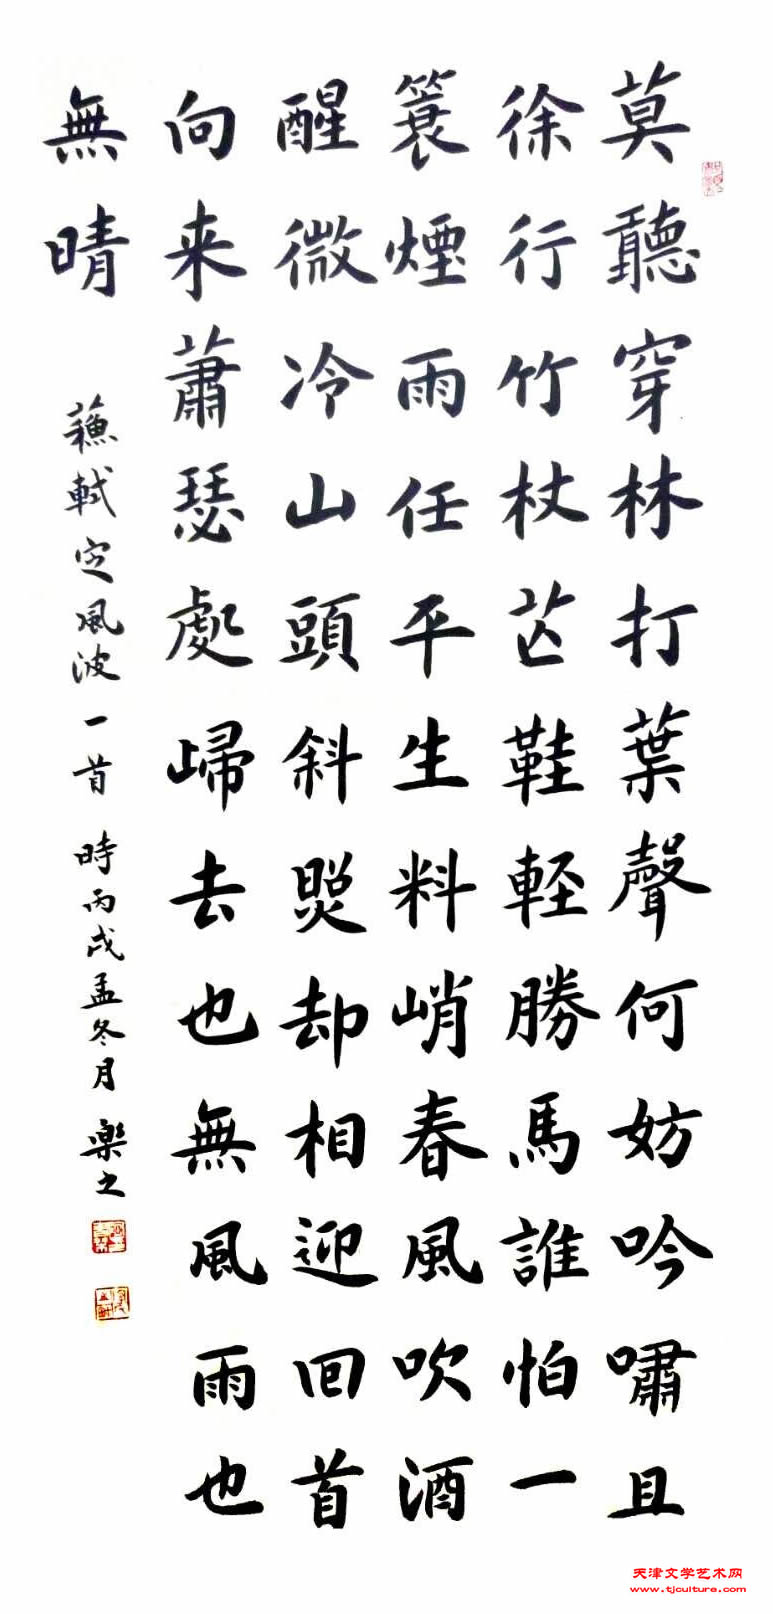 莫聽穿林打葉聲何妨吟嘯且
徐行竹杖芒鞋軽勝馬誰怕一
蓑煙雨任平生料峭春風吹酒
醒微冷山頭斜照却相迎回首
向来蕭瑟處歸去也無風雨也
無晴
蘇軾定風波一首 時丙戌孟冬月 樂之
天津文学艺术网
www.tjculture.com